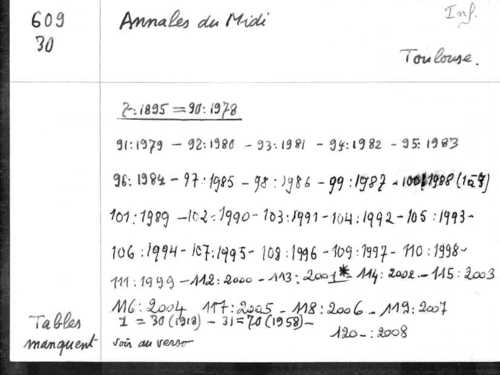 609 Annales du Midi Inf.
30
Toulouse.
7:1895 = 90:1978
91:1979 - 92:1980 - 93:1981 - 94:1982 - 95:1983
96:1984 - 97:1985 - 98:1986 - 99:1987 - 100:1988 (1à4)
101:1989 - 102:1990 - 103:1991 - 104:1992 - 105:1993-
106:1994 - 107:1995 - 108:1996 - 109:1997 - 110:1998-
111:1999 - 112:2000 - 113:2001* 114:2002 - 115:2003
116:2004 117:2005 - 118:2006 - 119:2007
Tables 1 = 30 (1918) - 31 = 70 (1958) -
120-:2008
manquent voir au verso